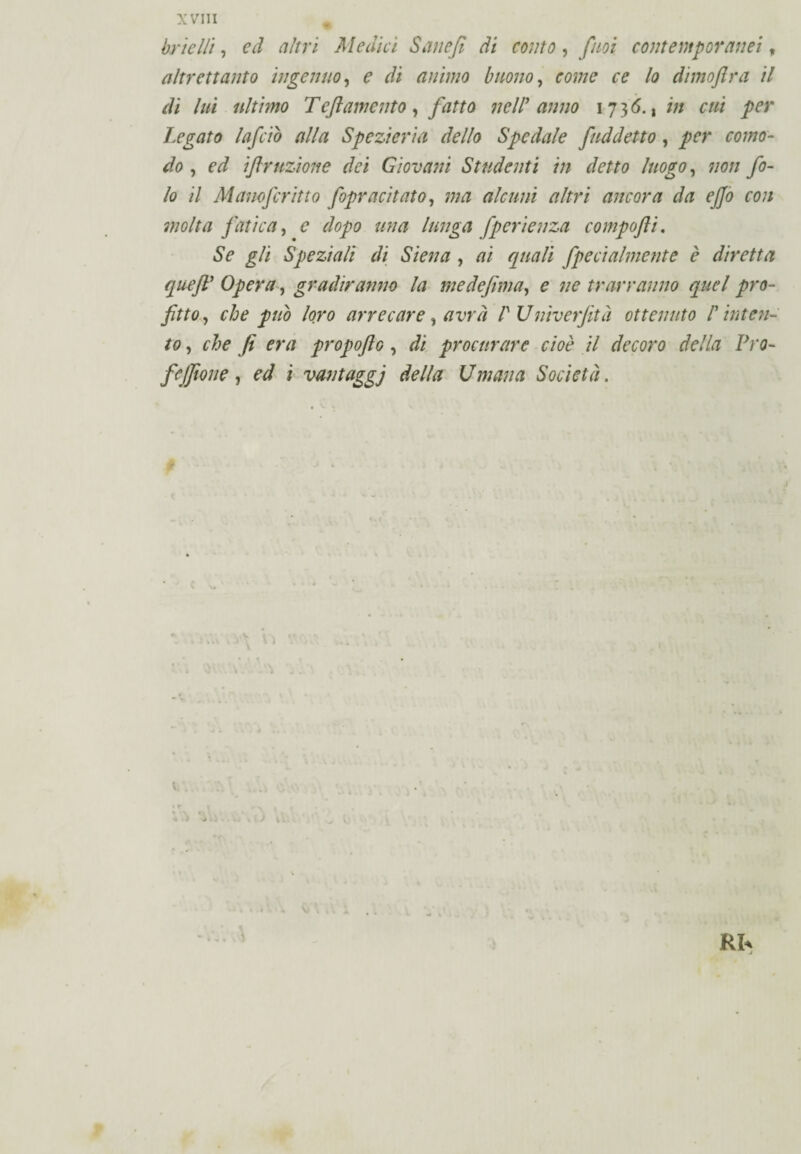 XVIII
brielli, ed altri Medici Sanesi di conto, ſuoi contemporanei,
altrettanto ingenuo, e di animo buono, come ce lo dimoſtra il
di lui ultimo Teſtamento, fatto nell' anno 1736., in cui per
Legato laſciò alla Spezieria dello Spedale ſuddetto, per como-
do, ed iſtruzione dei Giovani Studenti in detto luogo, non ſo-
lo il Manoſcritto ſopracitato, ma alcuni altri ancora da eſſo con
molta fatica, e dopo una lunga ſperienza compoſti.
Se gli Speziali di Siena, ai quali ſpecialmente è diretta
queſt' Opera, gradiranno la medeſima, e ne trarranno quel pro-
fitto, che può loro arrecare, avrà l' Univerſità ottenuto l' inten-
to, che ſi era propoſto, di procurare cioè il decoro della Pro-
feſſione, ed i vantaggj della Umana Società.
RI-